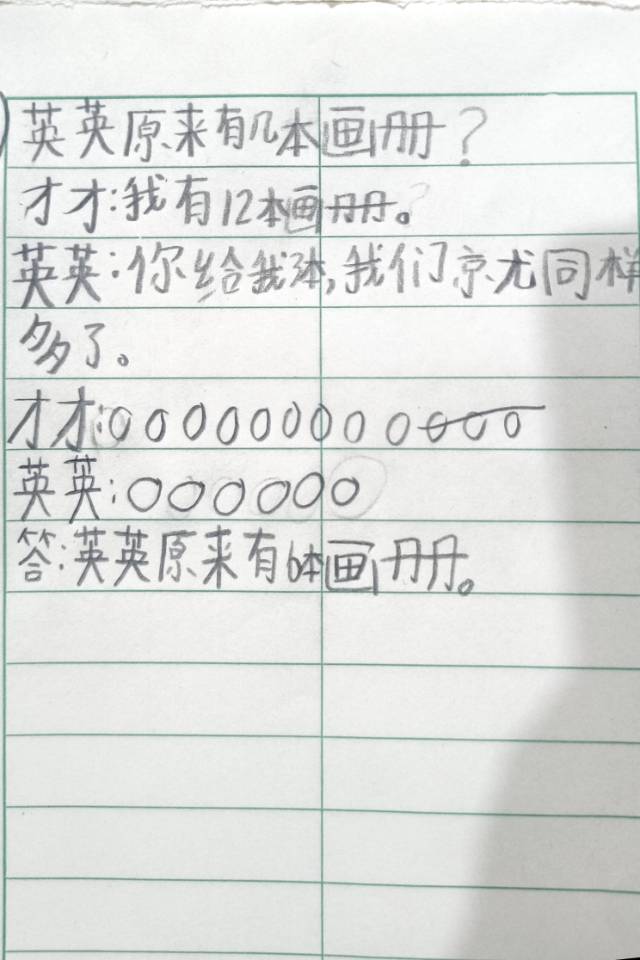 英英原来有几本画册？
才才：我有12本画册。
英英：你给我3本，我们京尤同样
多了。
才才：000000000000
英英：000000
答：英英原来有6本画册。